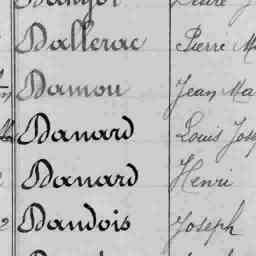 Dallerac Pierre
Damou Jean
Danard Louis
Danard Henri
Dandois Joseph